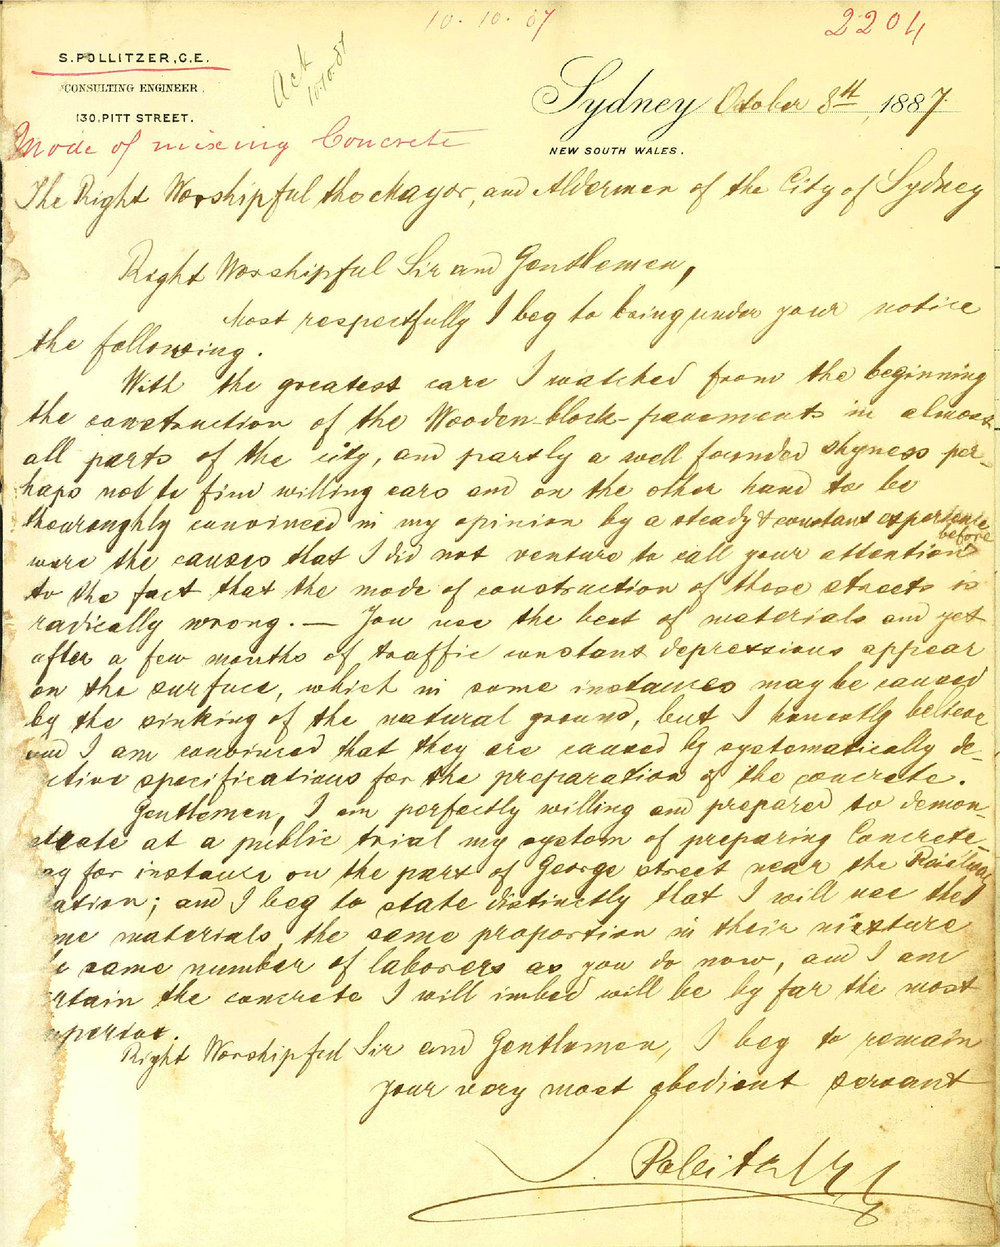 10. 10. 87
2204
Ack
10.10.87
S. POLLITZER, C.E.
CONSULTING ENGINEER.
130, PITT STREET.
Sydney October 8th, 1887.
NEW SOUTH WALES.
Mode of mixing Concrete
The Right Worshipful the Mayor, and Aldermen of the City of Sydney
Right Worshipful Sir and Gentlemen,
Most respectfully I beg to bring under your notice
the following.
With the greatest care I watched from the beginning
the construction of the Wooden-block-pavements in almost
all parts of the city, and partly a well founded shyness per-
haps not to find willing ears and on the other hand to be
thouroughly convinced in my opinion by a steady & constant experience
were the causes that I did not venture to call your attention before
to the fact that the mode of construction of these streets is
radically wrong. — You use the best of materials and yet
after a few months of traffic constant depressions appear
on the surface, which in some instances may be caused
by the sinking of the natural ground, but I honestly believe
and I am convinced that they are caused by systematically de-
ctive specifications for the preparation of the concrete.
Gentlemen, I am perfectly willing and prepared to demon-
strate at a public trial my system of preparing Concrete
ay for instance on the part of George street near the Railway
ation; and I beg to state distinctly that I will use the
me materials, the same proportion in their mixture
e same number of laborers as you do now, and I am
rtain the concrete I will imbed will be by far the most
uperior.
Right Worshipful Sir and Gentlemen, I beg to remain
your very most obedient servant
Pollitzer